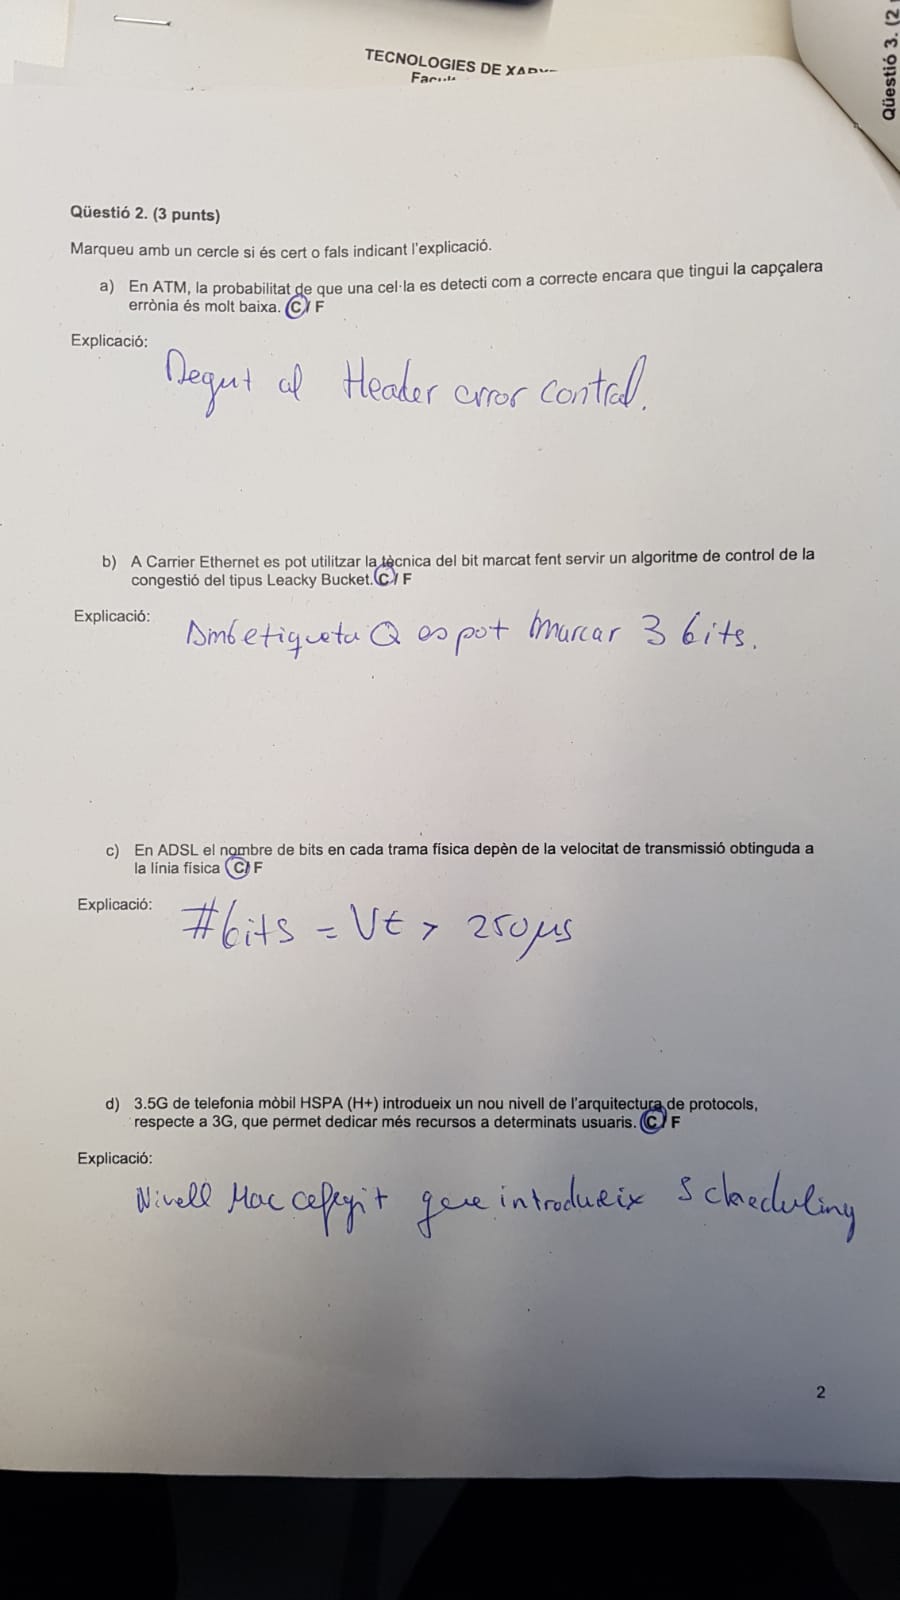 TECNOLOGIES DE
Qüestió 3. (2
Qüestió 2. (3 punts)
Marqueu amb un cercle si és cert o fals indicant l'explicació.
a) En ATM, la probabilitat de que una cel·la es detecti com a correcte encara que tingui la capçalera
errònia és molt baixa. C / F
Explicació:
Degut al Header error control.
b) A Carrier Ethernet es pot utilitzar la tècnica del bit marcat fent servir un algoritme de control de la
congestió del tipus Leacky Bucket. C / F
Explicació:
Amb etiqueta Q es pot marcar 3 bits.
c) En ADSL el nombre de bits en cada trama física depèn de la velocitat de transmissió obtinguda a
la línia física C / F
Explicació:
#bits = Vt > 250μs
d) 3.5G de telefonia mòbil HSPA (H+) introdueix un nou nivell de l'arquitectura de protocols,
respecte a 3G, que permet dedicar més recursos a determinats usuaris. C / F
Explicació:
Nivell Mac afegit que introdueix Scheduling
2